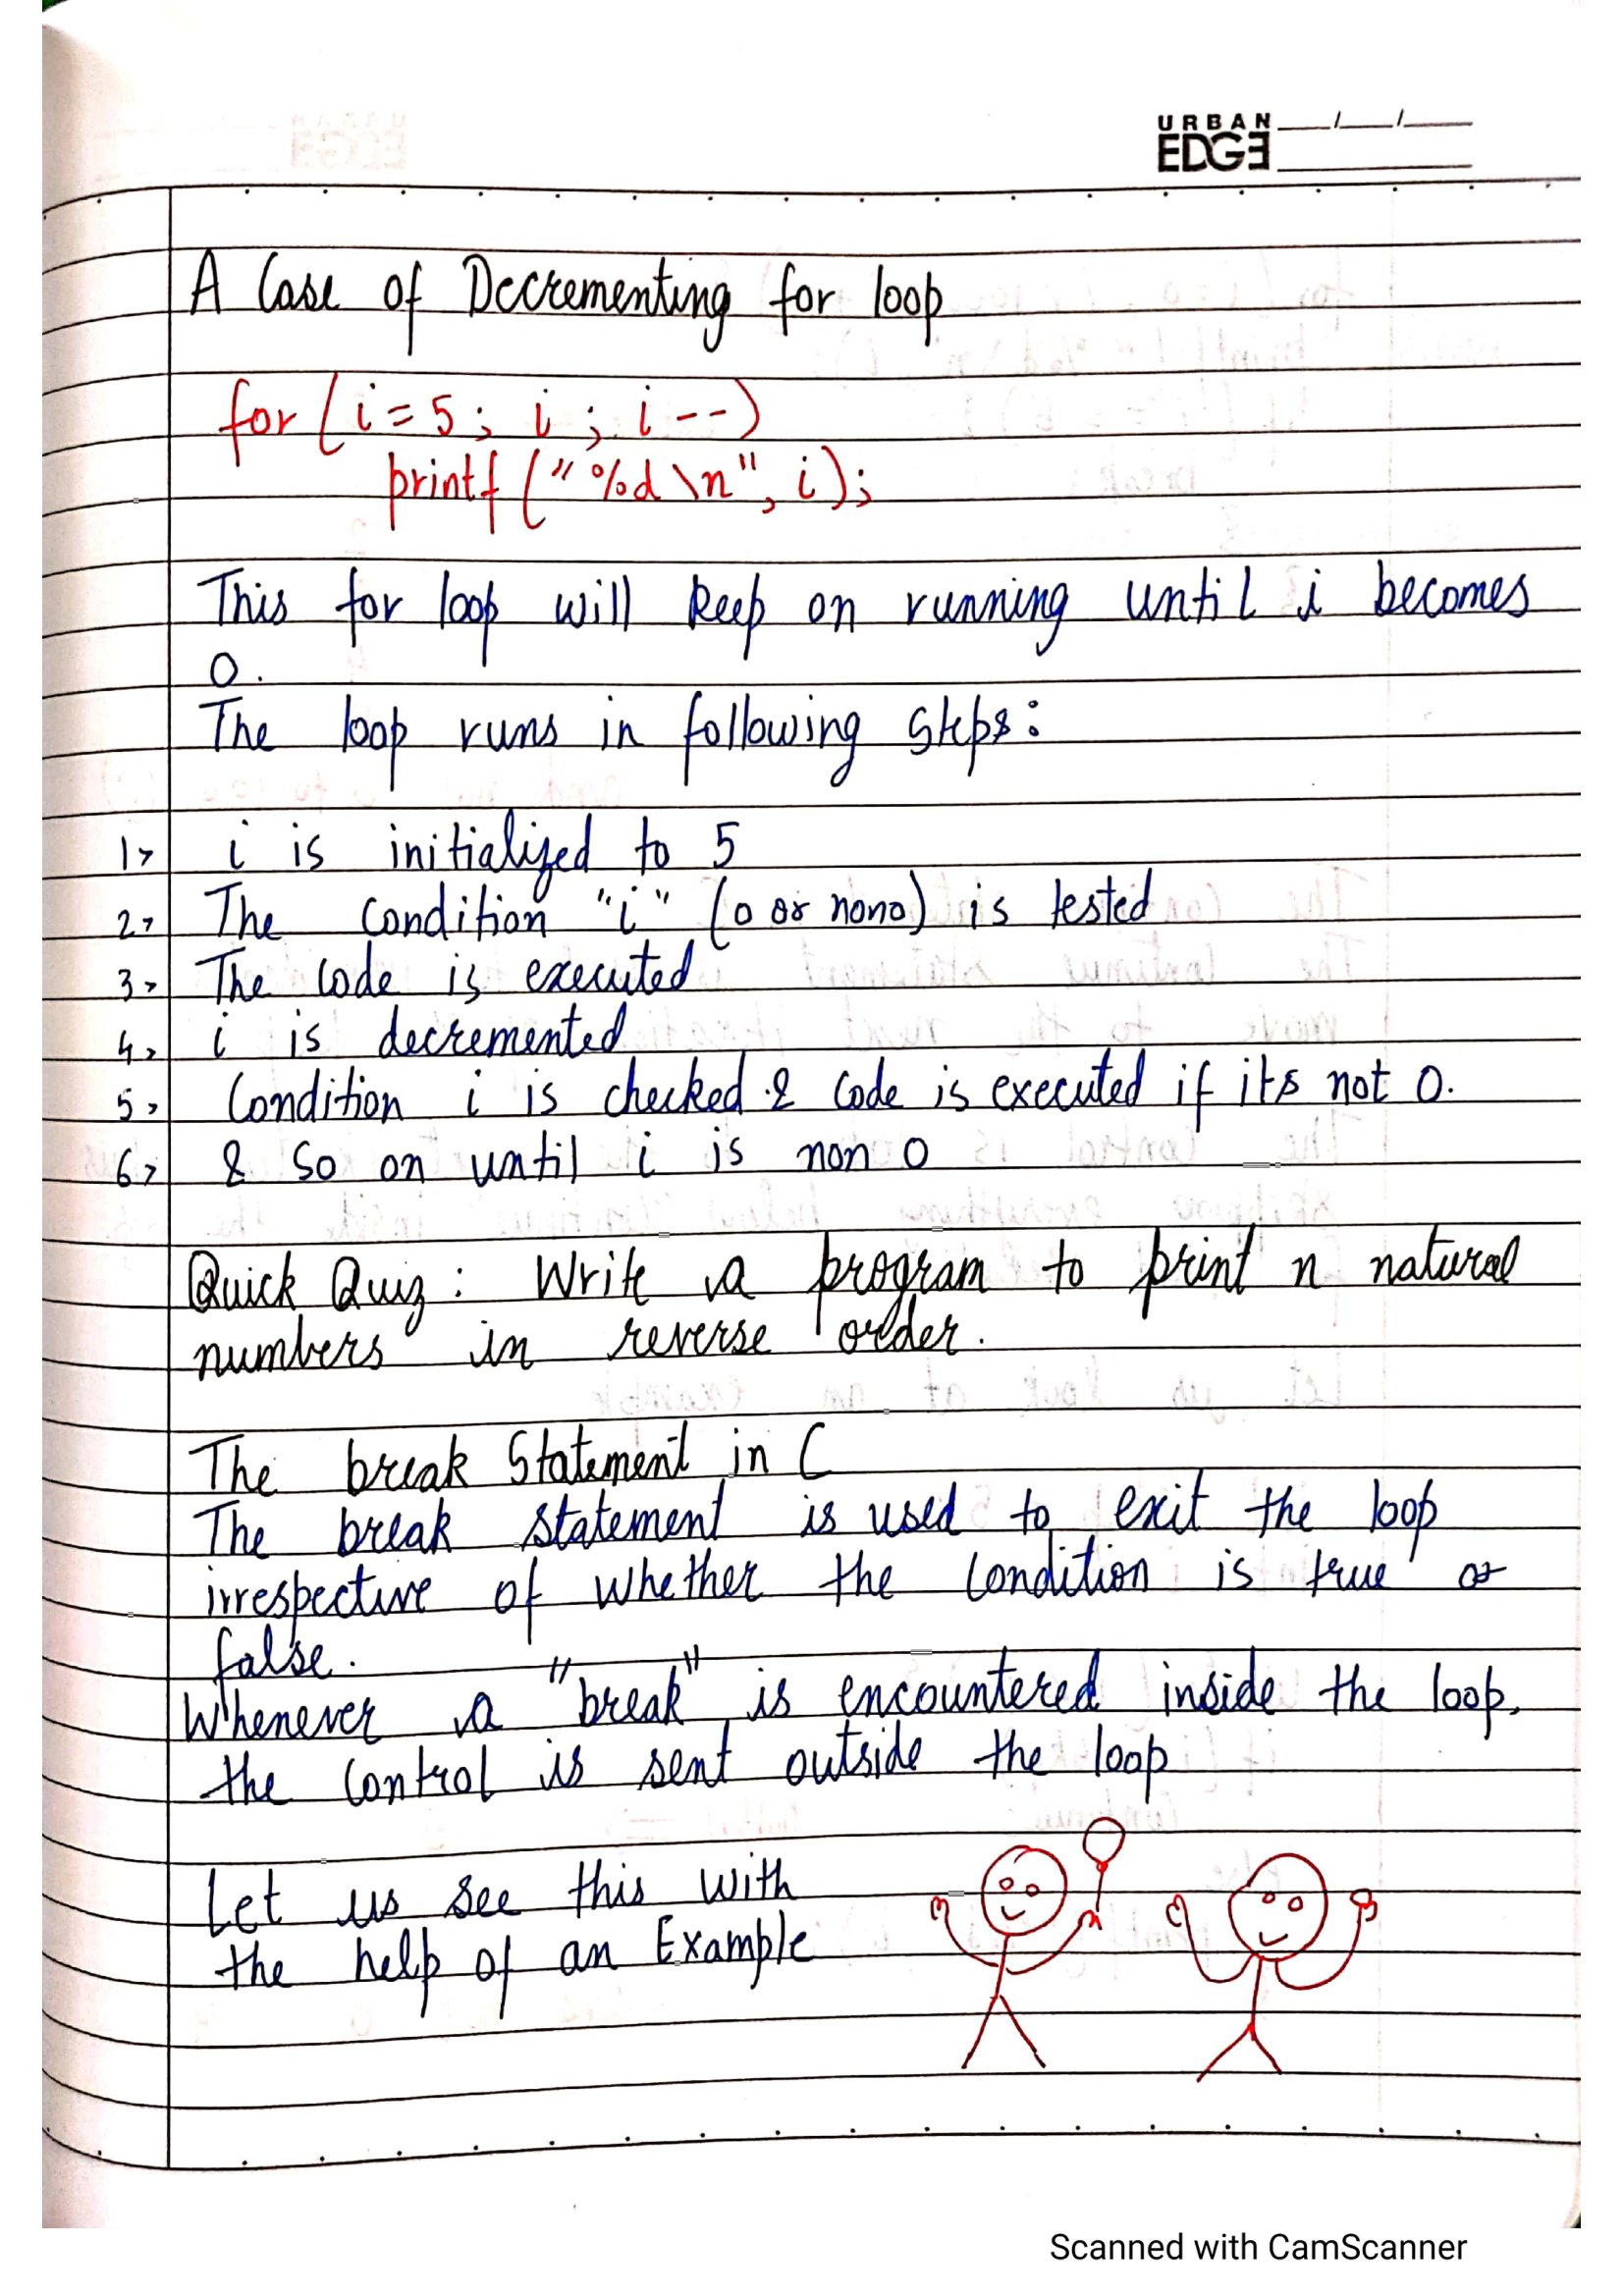 URBAN
EDGE
A Case of Decrementing for loop
for (i=5; i; i--)
printf ("%d \n", i);
This for loop will keep on running until i becomes
0.
The loop runs in following steps:
1> i is initialized to 5
2> The condition "i" (0 or non0) is tested
3> The code is executed
4> i is decremented
5> Condition i is checked & code is executed if its not 0.
6> & so on until i is non 0
Quick Quiz: Write a program to print n natural
numbers in reverse order.
The break Statement in C
The break statement is used to exit the loop
irrespective of whether the condition is true or
false.
Whenever a "break" is encountered inside the loop,
the control is sent outside the loop
Let us see this with
the help of an Example
Scanned with CamScanner